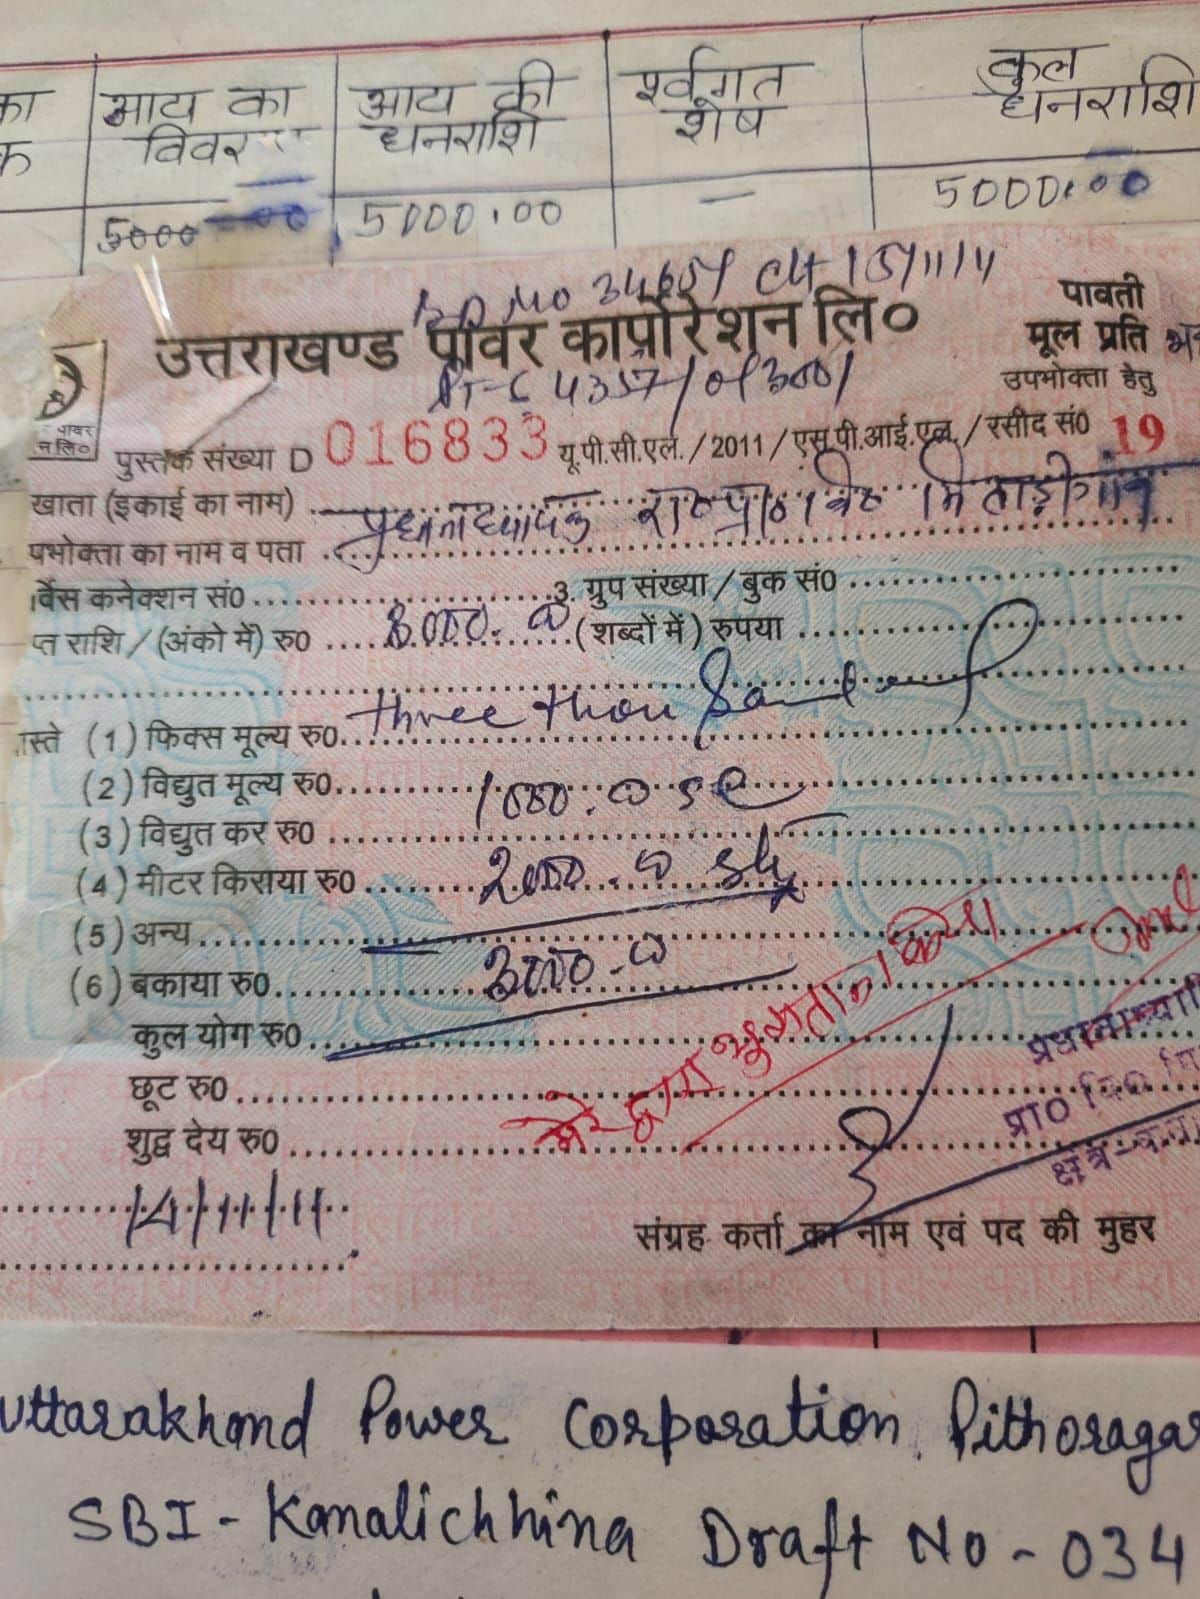 का
क
आय का
विवर
आय की
धनराशि
पूर्वगत
शेष
कुल
धनराशि
5000 00
5000.00
—
5000.00
BD No 34651 dt 15/11/11
उत्तराखण्ड पावर कार्पोरेशन लि०
पावती
मूल प्रति
उपभोक्ता हेतु
पावर
न लि०
पुस्तक संख्या D 016833 यू.पी.सी.एल. / 2011 / एस.पी.आई.एल. / रसीद सं० 19
खाता (इकाई का नाम)
प्रधानाध्यापक रा० प्रा० वि०
पभोक्ता का नाम व पता
र्विस कनेक्शन सं० 3. ग्रुप संख्या / बुक सं०
प्त राशि / (अंको में) रु० 3000.00 (शब्दों में) रुपया
three thousand
ास्ते (1) फिक्स मूल्य रु०
(2) विद्युत मूल्य रु० 1000.00 SC
(3) विद्युत कर रु०
(4) मीटर किराया रु० 2000.00
(5) अन्य
(6) बकाया रु० 3000-00
कुल योग रु०
मेरे द्वारा भुगतान किया
छूट रु०
शुद्व देय रु०
प्रधानाध्यापि
प्रा० वि०
14/11/11
संग्रह कर्ता का नाम एवं पद की मुहर
Uttarakhand Power Corporation Pithoraga
SBI - Kanalichhina Draft No - 034